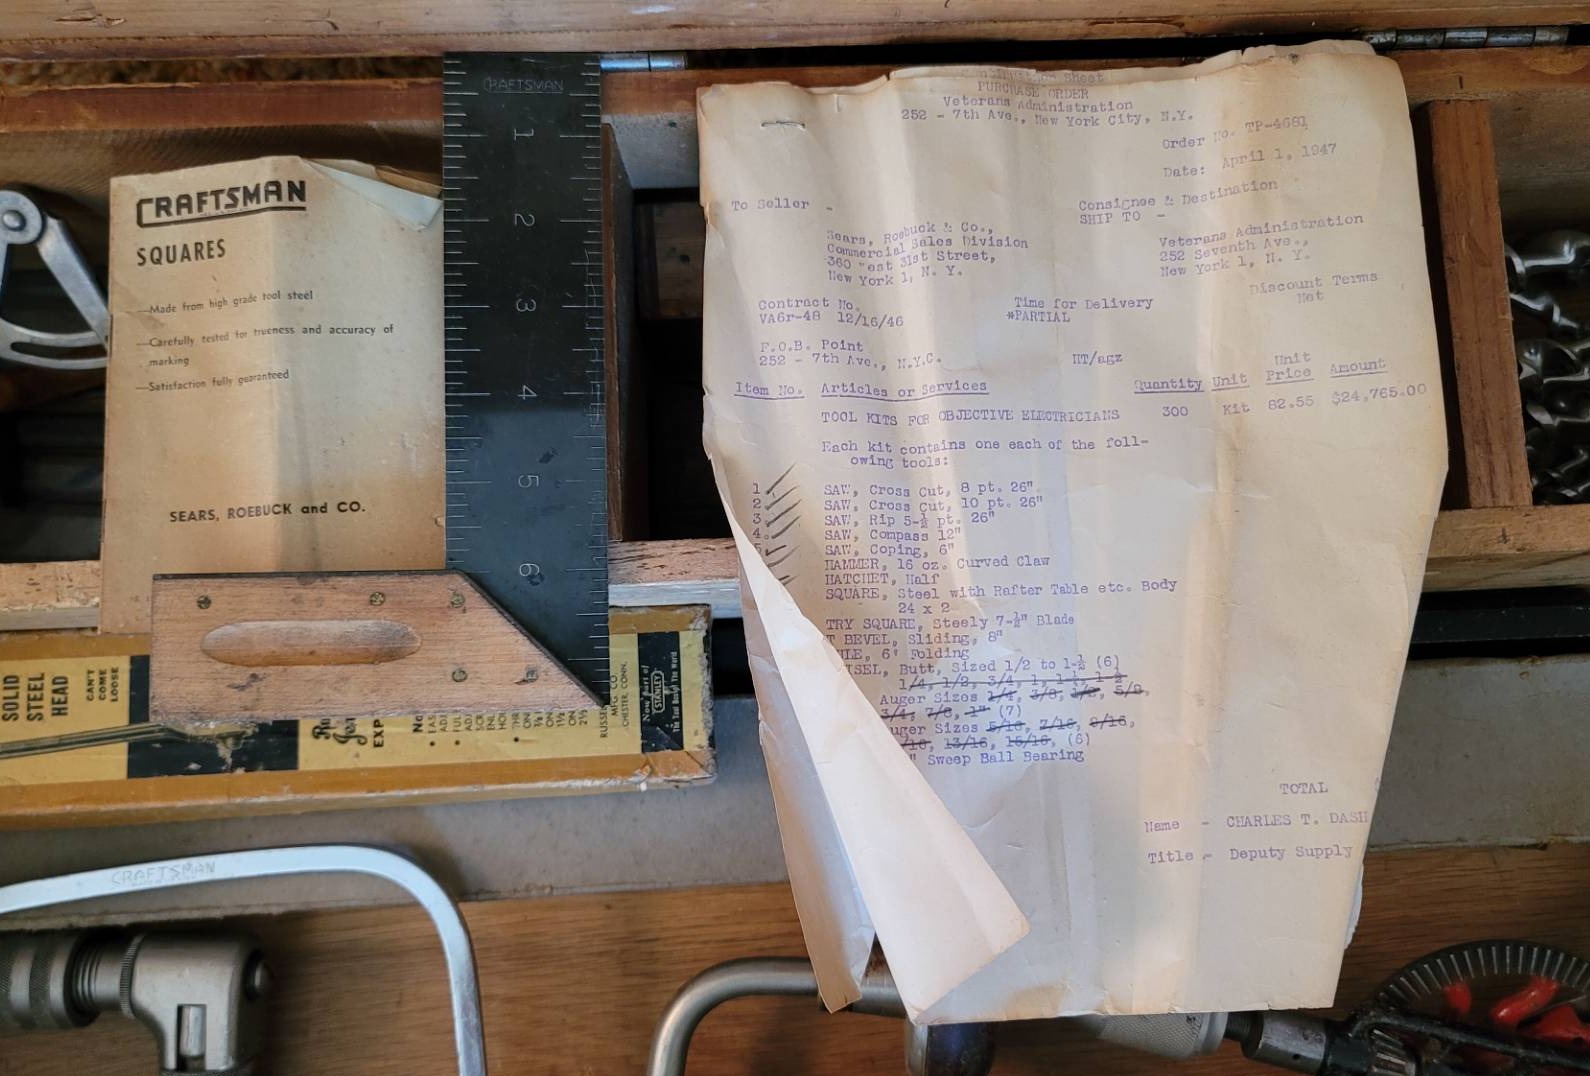 CRAFTSMAN
SQUARES
—Made from high grade tool steel
—Carefully tested for trueness and accuracy of
marking
—Satisfaction fully guaranteed
SEARS, ROEBUCK and CO.
CRAFTSMAN
1
2
3
4
5
6
SOLID
STEEL
HEAD
CAN'T
COME
LOOSE
EXP
Now Part of
STANLEY
The Tool Box of The World
CRAFTSMAN
Sheet
PURCHASE ORDER
Veterans Administration
252 - 7th Ave., New York City, N.Y.
Order No. TP-4681
Date: April 1, 1947
To Seller -
Consignee & Destination
SHIP TO -
Sears, Roebuck & Co.,
Commercial Sales Division
360 West 31st Street,
New York 1, N. Y.
Veterans Administration
252 Seventh Ave.,
New York 1, N. Y.
Discount Terms
Net
Contract No.
VA6r-48 12/16/46
Time for Delivery
*PARTIAL
F.O.B. Point
252 - 7th Ave., N.Y.C.
HT/agz
Item No. Articles or Services Quantity Unit Unit Price Amount
TOOL KITS FOR OBJECTIVE ELECTRICIANS 300 Kit 82.55 $24,765.00
Each kit contains one each of the foll-
owing tools:
1 SAW, Cross Cut, 8 pt. 26"
2 SAW, Cross Cut, 10 pt. 26"
3 SAW, Rip 5-½ pt. 26"
4 SAW, Compass 12"
5 SAW, Coping, 6"
HAMMER, 16 oz. Curved Claw
HATCHET, Half
SQUARE, Steel with Rafter Table etc. Body
24 x 2
TRY SQUARE, Steely 7-½" Blade
T BEVEL, Sliding, 8"
6' Folding
Butt, Sized 1/2 to 1-½ (6)
1/4, 1/2, 3/4, 1, 1-¼, 1-½
Auger Sizes 1/4, 3/8, 1/2, 5/8,
3/4, 7/8, 1" (7)
Auger Sizes 5/16, 7/16, 9/16,
13/16, 15/16, (6)
Sweep Ball Bearing
TOTAL
Name - CHARLES T. DASH
Title - Deputy Supply